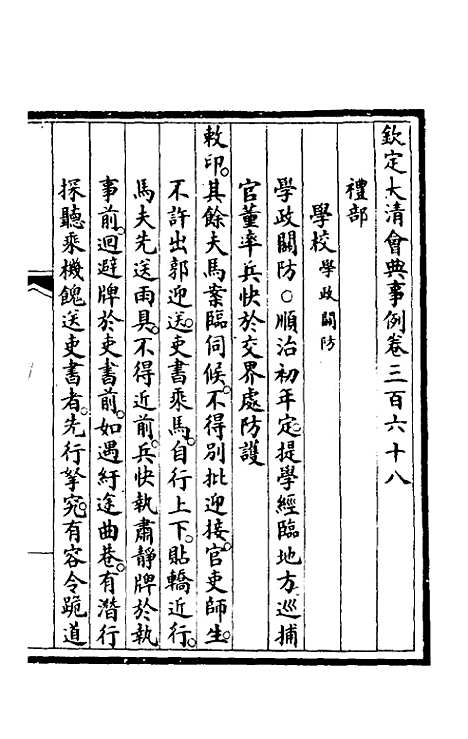 欽定大清會典事例卷三百六十八
禮部
學校學政關防
學政關防○順治初年定提學經臨地方巡捕
官董率兵快於交界處防護
敕印。其餘夫馬案臨伺候。不得別批迎接。官吏師生。
不許出郭迎送。吏書乘馬。自行上下。貼轎近行。
馬夫先送雨具。不得近前。兵快執肅靜牌於執
事前。迴避牌於吏書前。如遇紆途曲巷。有潛行
探聽乘機餽送吏書者。先行拏究。有容令跪道